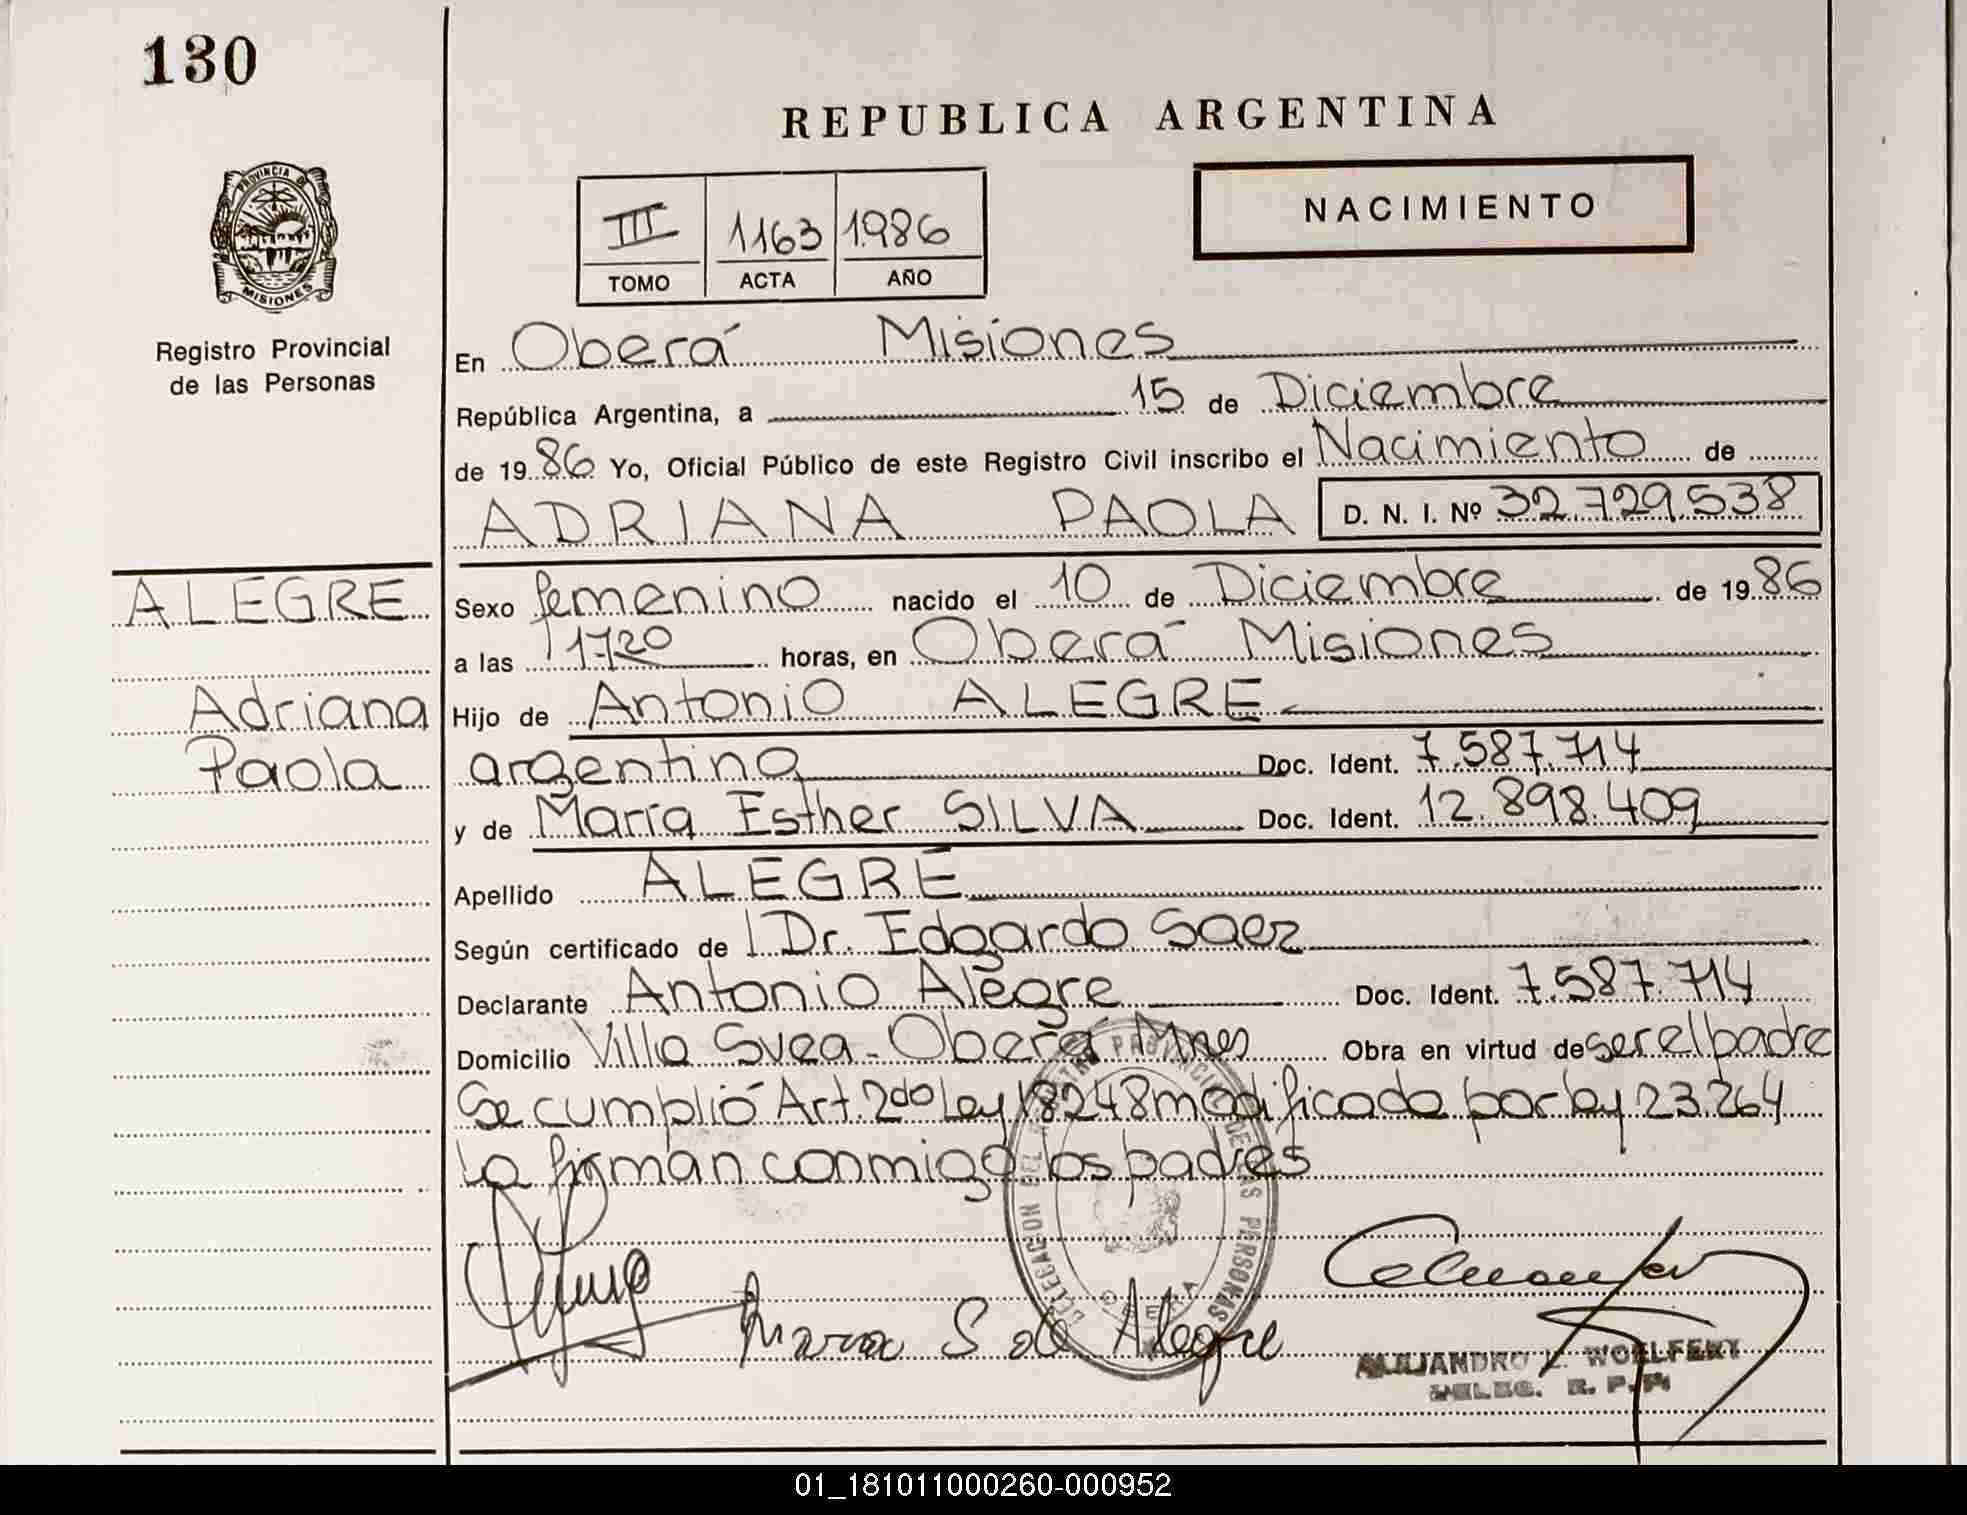 130
REPUBLICA ARGENTINA
PROVINCIA DE
MISIONES
Registro Provincial
de las Personas
III 1163 1986
TOMO ACTA AÑO
NACIMIENTO
En Oberá Misiones
República Argentina, a 15 de Diciembre
de 1986 Yo, Oficial Público de este Registro Civil inscribo el Nacimiento de
ADRIANA PAOLA D. N. I. Nº 32.729.538
ALEGRE
Adriana
Paola
Sexo femenino nacido el 10 de Diciembre de 1986
a las 1720 horas, en Oberá Misiones
Hijo de Antonio ALEGRE
argentino Doc. Ident. 7.587.714
y de María Esther SILVA Doc. Ident. 12.898.409
Apellido ALEGRE
Según certificado de Dr. Edgardo Saez
Declarante Antonio Alegre Doc. Ident. 7.587.714
Domicilio Villa Svea - Oberá Mnes Obra en virtud de ser el padre
Se cumplió Art. 2do Ley 18248 modificada por ley 23.264
La firman conmigo los padres
DELEGACION DEL REGISTRO PROVINCIAL DE LAS PERSONAS
OBERA
Maria S de Alegre
ALEJANDRO L. WOELFERT
DELEG. R. P. P.
01_181011000260-000952